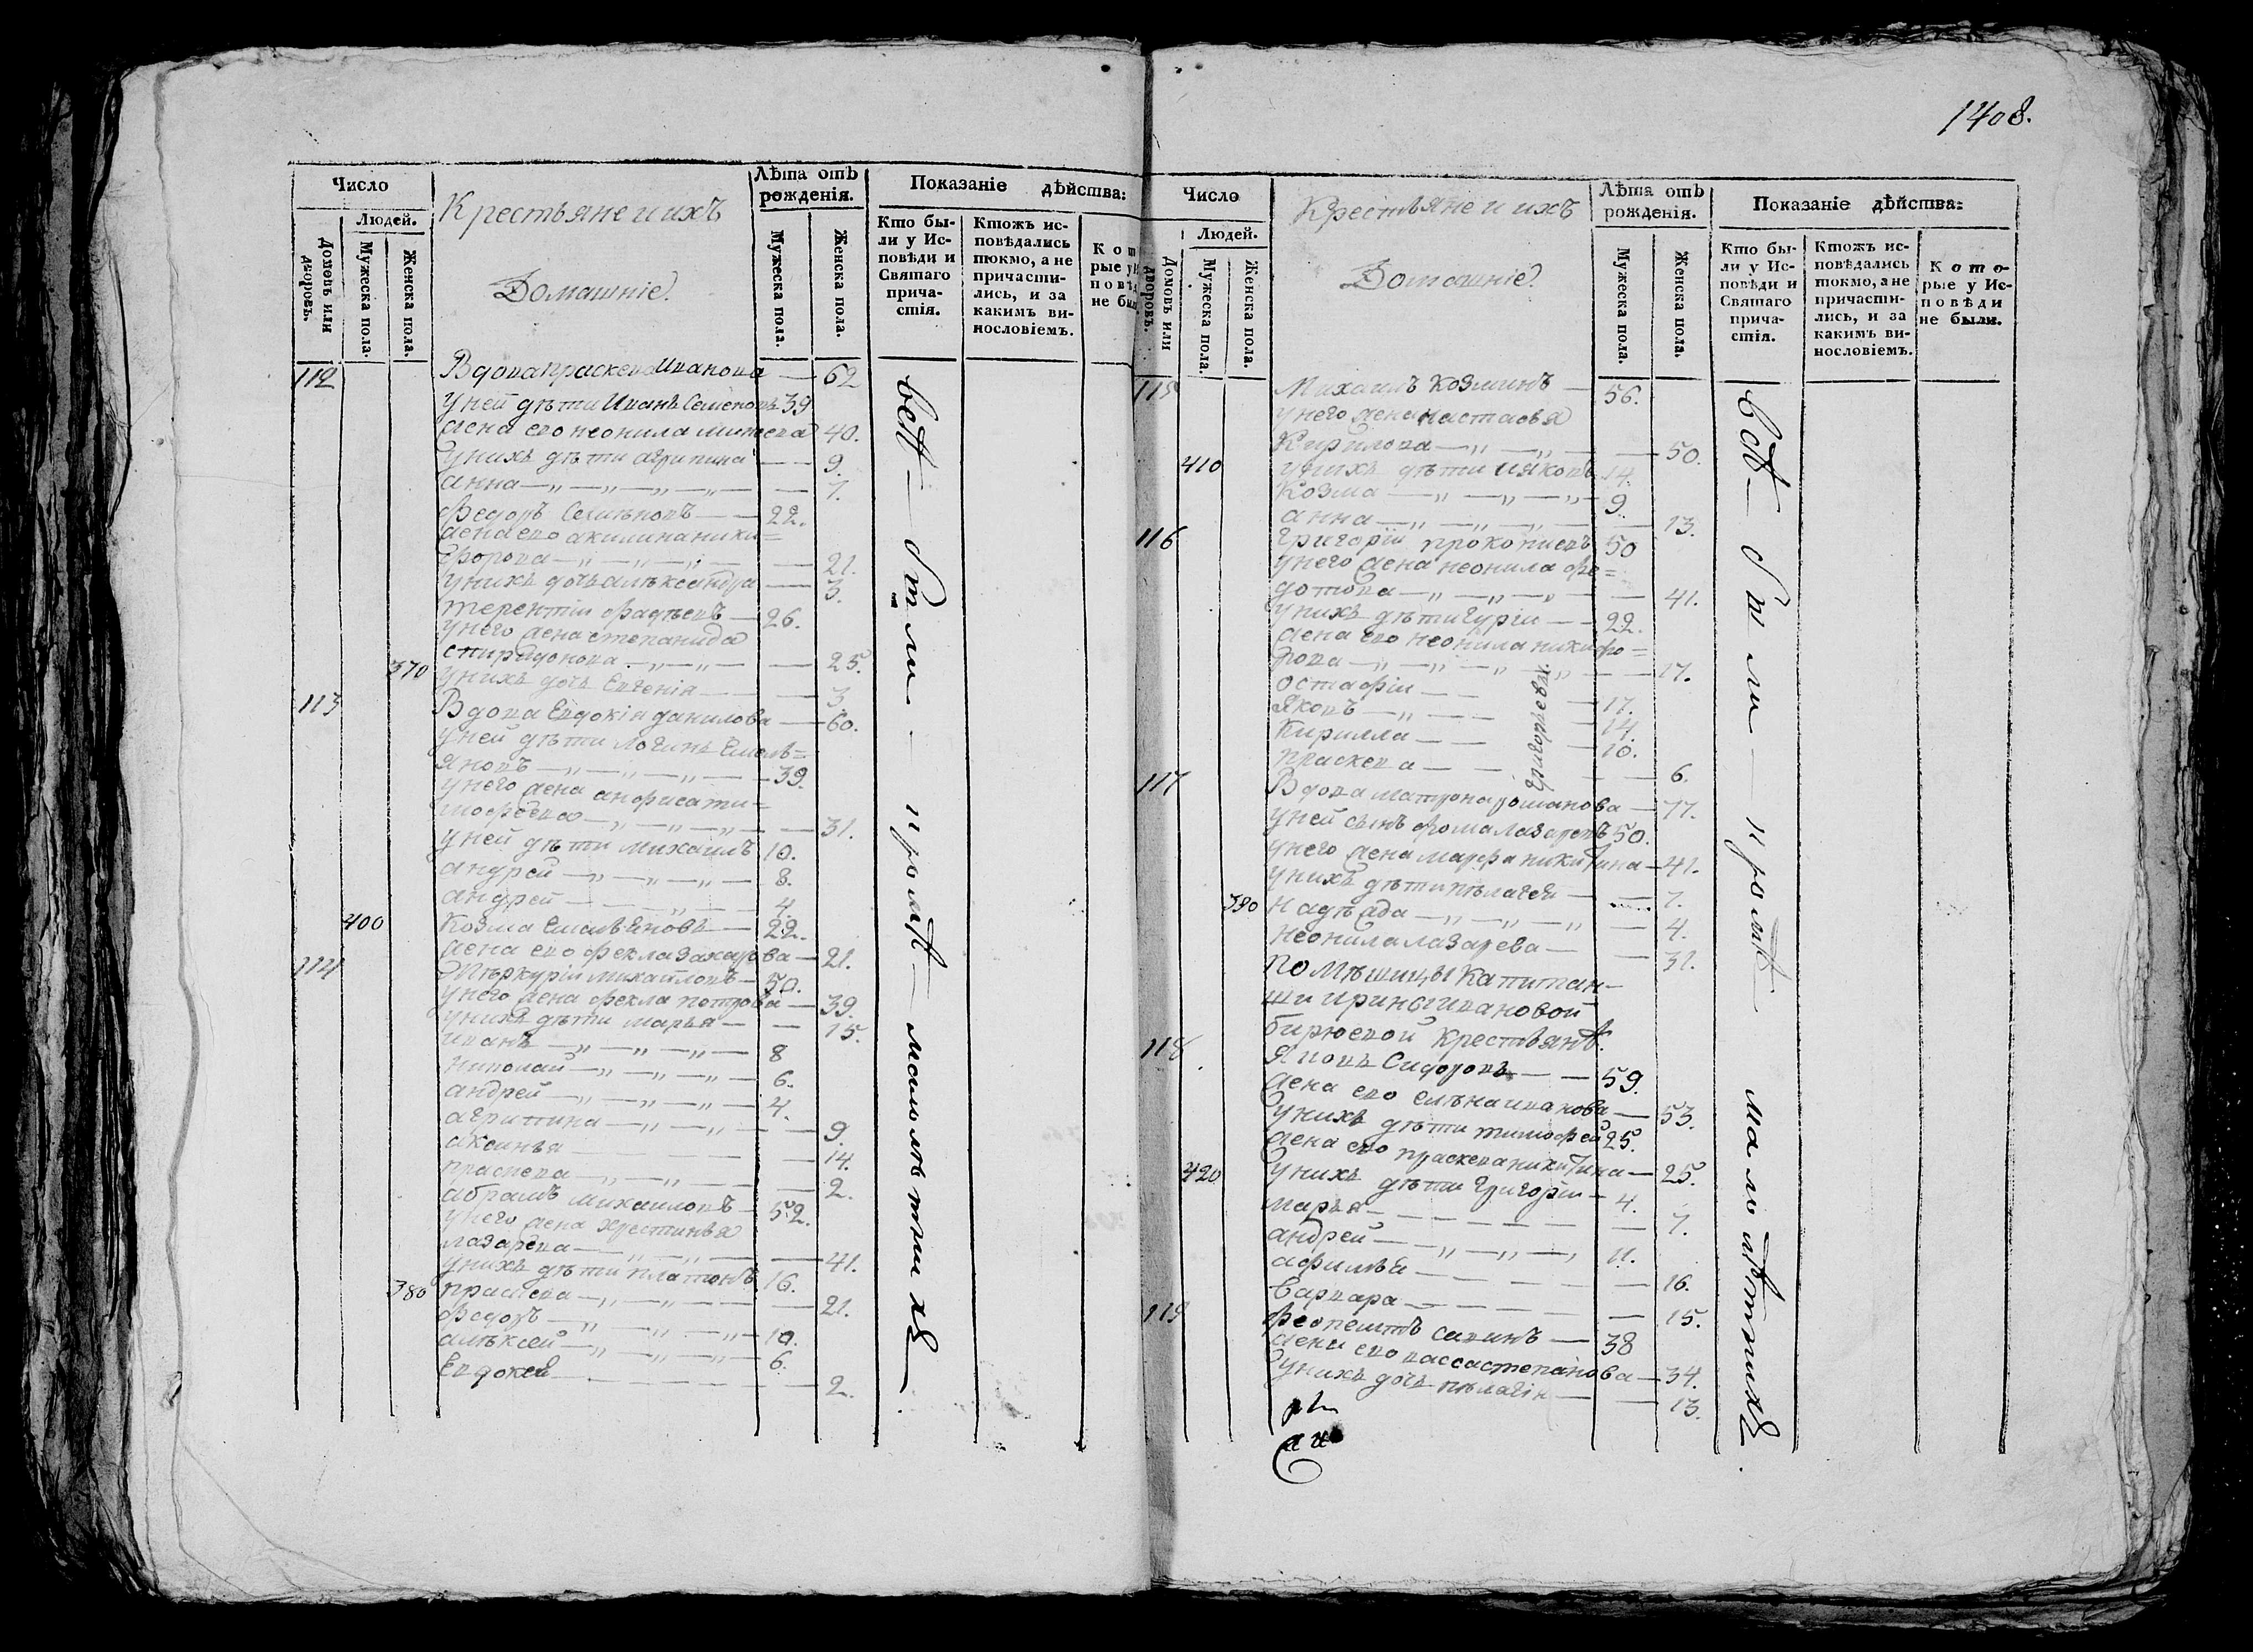 1408.
Число
Людей.
Домовъ или дворовъ.
Мужеска пола.
Женска пола.
Крестьяне и ихъ
Домашніе.
Лѣта отъ рожденія.
Мужеска пола.
Женска пола.
Показаніе дѣйства:
Кто были у Исповѣди и Святаго причастія.
Ктожъ исповѣдались токмо, а не причастились, и за какимъ винословіемъ.
112 Вдова праскева Иванова — 62
у ней дѣти Иванъ Семеновъ 39
жена его неонила 40.
у нихъ дѣти агрипина — — 9.
анна — „ — „ — „ — „ — — 7.
Федоръ Семеновъ — — 22.
жена его акилина ники=
форова — „ — „ — „ — — 21.
у нихъ дочь алѣксандра — 3.
терентіи фадѣевъ — 26.
у него жена степанида
370 спиридонова — „ — „ — — 25.
у нихъ дочь Евгенія — — 3.
113 Вдова Евдокія данилова — 60.
у ней дѣти логинъ Емель=
яновъ — „ — „ — „ — — 39.
у него жена анфиса ти=
мофѣева — „ — „ — „ — — 31.
у ней дѣти михаилъ 10.
андрей — „ — „ — „ — 8.
андрей — — — „ — 4.
400 Козма Емельяновъ — 22.
жена его фекла захарова — 21.
114 Мѣркурій михаиловъ — 50.
у него жена фекла петрова — 39.
у нихъ дѣти марья — — 15.
иванъ — „ — „ — „ — 8
николай — „ — „ — „ — 6.
андрей — „ — „ — „ — 4.
агрипина — „ — „ — — 9.
аксинья — — — — 14.
праскева — „ — „ — — 2.
абрамъ михаиловъ — 52.
у него жена христинья
лазарева — „ — „ — — 41.
у нихъ дѣти платонъ 16.
380 праскева — „ — „ — — 21.
федоръ — „ — „ — „ — 10.
алѣксей — „ — „ — „ — 6.
Евдокея — — — — 2.
всѣ — были — кромѣ — малолѣтнихъ
Число
Людей.
Домовъ или дворовъ.
Мужеска пола.
Женска пола.
Крестьяне и ихъ
Домашніе.
Лѣта отъ рожденія.
Мужеска пола.
Женска пола.
Показаніе дѣйства:
Кто были у Исповѣди и Святаго причастія.
Ктожъ исповѣдались токмо, а не причастились, и за какимъ винословіемъ.
Которые у Исповѣди не были.
115 Михаилъ Козминъ — 56.
у него жена настасья
Кирилова — „ — „ — — 50.
410 у нихъ дѣти ияковъ 14.
Козма — „ — „ — „ — 9.
анна — „ — „ — „ — — 13.
116 григорій прокопиевъ 50
у него жена неонила фе=
дотова — „ — „ — „ — — 41.
у нихъ дѣти гурiи — — 22.
жена его неонила никифо=
рова — „ — „ — „ — „ — — 17.
остафіи — — — 17.
Яковъ — „ — — — 14.
Кирилла — — — 10.
праскева — — — — 6.
григорьевы.
117 Вдова матрона романова — 77.
у ней сынъ фома лазаревъ 50.
у него жена марфа никитина — 41.
у нихъ дѣти пѣлагея — 7.
390 надѣжда — „ — „ — „ — 4.
неонила лазарева — — 31.
помѣщицы Капитан—
ши ирины ивановой
бирюевой Крестьянѣ.
118 Яковъ Сидоровъ — — 59.
жена его елѣна иванова — 53.
у нихъ дѣти тимофей 25.
жена его праскева никитина — 25.
420 у нихъ дѣти григоріи — 4.
марья — — — — — 7.
андрей — „ — „ — „ 11.
афимья — — — — — 16.
варвара — — — — — 15.
119 савинъ — 38
жена его васса степанова — 34.
у нихъ дочь пѣлагія — — 13.
всѣ — были — кромѣ — малолѣтнихъ